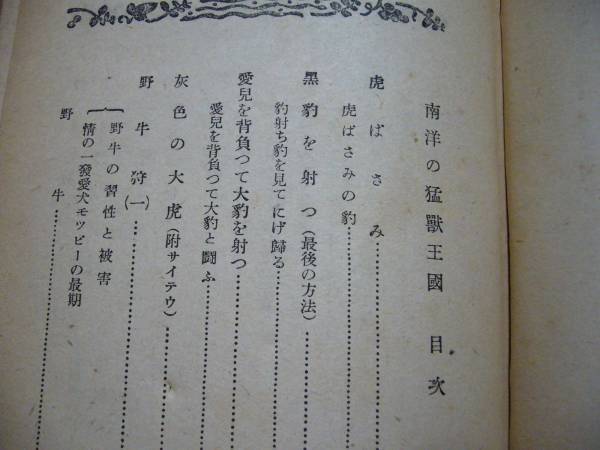 南洋の猛獸王國 目次
虎ばさみ………………
虎ばさみの豹………………
黑豹を射つ(最後の方法)………………
豹射ち豹を見てにげ歸る………………
愛兒を背負つて大豹を射つ………………
愛兒を背負つて大豹と鬪ふ………………
灰色の大虎(附サイテウ)………………
野牛狩(一)………………
野牛の習性と被害
情の一發愛犬モッピーの最期
野牛………………